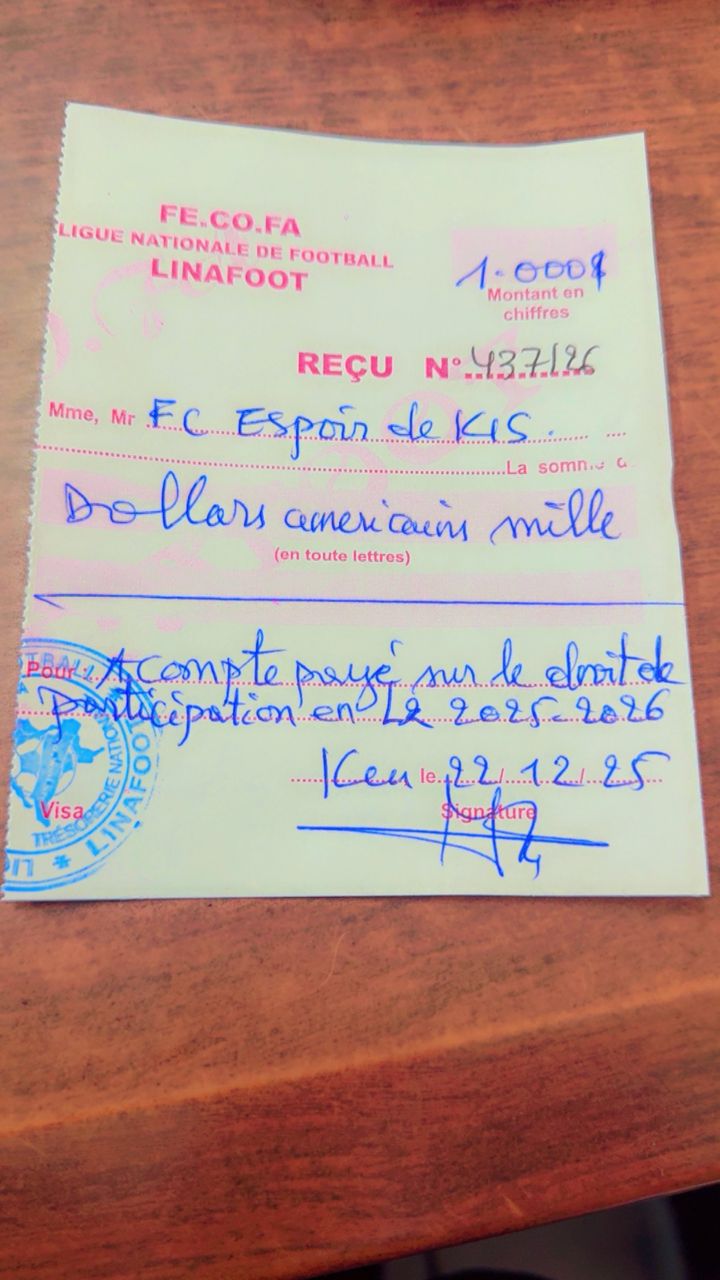 FE.CO.FA
LIGUE NATIONALE DE FOOTBALL
LINAFOOT
1.000$
Montant en
chiffres
REÇU N° 437/26
Mme, Mr FC Espoir de KIS.
La somme
Dollars americains mille
(en toute lettres)
Pour : Acompte payé sur le droit de
participation en L2 2025-2026
le 22/12/25
Visa
Signature
TRÉSORERIE NATION
LINAFOOT